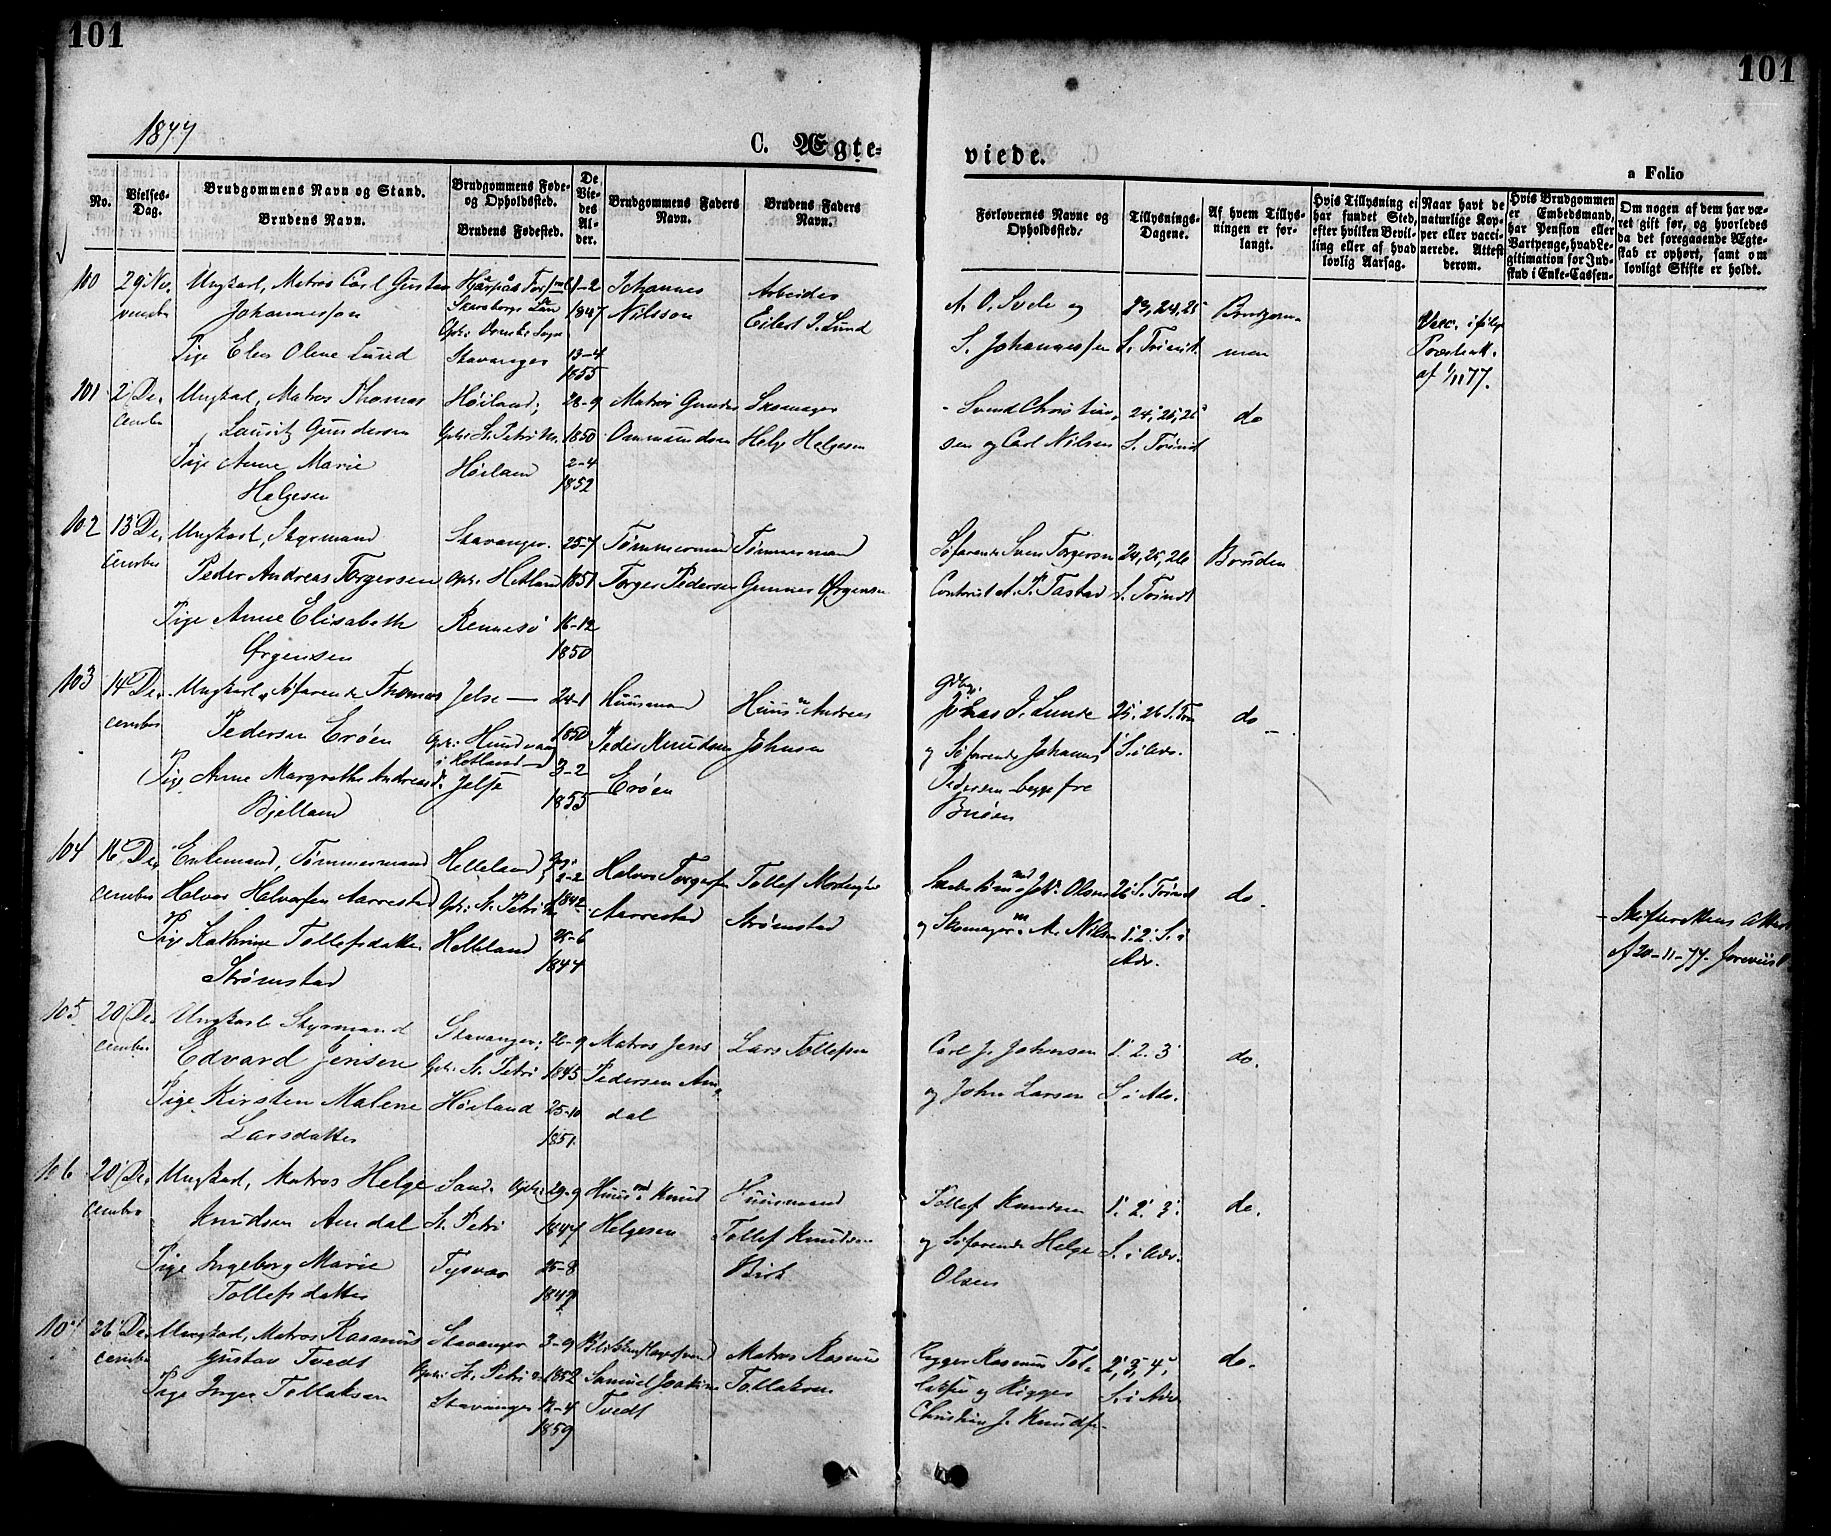 101
101
1877
C. Ægte-
viede.
a Folio
No.
Vielses-
Dag.
Brudgommens Navn og Stand.
Brudens Navn.
Brudgommens Føde-
og Opholdssted.
Brudens Fødested.
De
Vie-
des
Al-
der.
Brudgommens Faders
Navn.
Brudens Faders
Navn.
Forlovernes Navne og
Opholdssted.
Tillysnings-
Dagene.
Af hvem Tillys-
ningen er for-
langt.
Hvis Tillysning ei
har fundet Sted,
efter hvilken Bevil-
ling eller af hvad
lovlig Aarsag.
Naar havt de
naturlige Kop-
per eller vacci-
nerede. Attest
derom.
Hvis Brudgommen
er Embedsmand,
har Pension eller
Vartpenge, hvad Le-
gitimation for Ind-
skud i Enke-Cassen.
Om nogen af dem har væ-
ret gift før, og hvorledes
da det foregaaende Ægte-
skab er ophørt, samt om
lovligt Skifte er holdt.
100 29 No- Ungkarl, Matros Carl Gustav 11-2 Johannes Arbeider A. O. Svele og 23, 24, 25 Brudgom-
vember Johannesson Skaraborgs Län 1847 Nilsson Eilert J. Lund S. Johannessen S. Trinit. men Vacc. ifølge
Pige Elen Olene Lund Stavanger 13-4 1855 af 1/11 77.
101 2 De- Ungkarl, Matros Thomas Høiland; 28-9 Matros Gunder Skomager Svend Christian- 24, 25, 26 do
cember Lauritz Gundersen Oph: St. Petri 1850 Ommundsen Helge Helgesen sen og Carl Nilsen S. Trinit
Pige Anne Marie Høiland 2-4
Helgesen 1852
102 13 De- Ungkarl, Styrmand Stavanger. 25-7 Tømmermand Tømmermand Søfarende Sven Torgersen 24, 25, 26 Bruden
cember Peder Andreas Torgersen Oph: Hetland 1851 Torger Pedersen Gunner Ørgensen A. P. Tastad S. Trinit
Pige Anne Elisabeth Rennesø 16-12
Ørgensen 1850
103 14 De- Ungkarl, Søfarende Thomas Jelse 24-1 Huusmand Huusm Andreas Johas J. Lunde 25, 26 S. Trin do
cember Pedersen Erøen Oph: Hundvaag 1850 Peder Knudsen Johnsen og Søfarende Johannes 1 S. i Adv.
i Hetland
Pige Anne Margrethe Andreasd. Jelse 3-2 Erøen Pedersen begge fra
Bjelland 1855 Buøen
104 16 De- Enkemand, Tømmermand Helleland 2-2 Halvor Torgersen Tollef Joh. Olsen 26 S. Trinit do.
cember Halvor Halvorsen Aarrestad Oph: St. Petri 1842 Aarrestad Strømstad og Skomagerm A. Nilsen 1. 2. S. i Skifterettens Attest
Pige Kathrine Tollefsdatter Helleland 25-6 Adv. af 20-11-77 foreviist
Strømstad 1844
105 20 De- Ungkarl Styrmand Stavanger; 26-9 Matros Jens Lars Tollefsen Carl J. Johnsen 1. 2. 3 do.
cember Edvard Jensen Oph: St. Petri 1845 Pedersen Am-
Pige Kirsten Malene Høiland 25-10 dal og John Larsen S. i Adv.
Larsdatter 1851.
106 20 De- Ungkarl, Matros Helge Sand. Oph: 29-9 Huusmd Knud Huusmand Tollef Knudsen 1. 2. 3. do.
cember Knudsen Amdal St. Petri 1847 Helgesen Tollef Knudsen og Søfarende Helge S. i Adv.
Pige Ingeborg Marie Tysvær 25-8 Birk Olsen
Tollefsdatter 1847
107 26 De- Ungkarl, Matros Rasmus Stavanger 3-9 Matros Rasmus Rigger Rasmus Tol- 2, 3, 4, do.
cember Gustav Tvedt Oph: St. Petri 1852 Samuel Joakim Tollaksen laksen og Rigger S. i Adv
Pige Inger Tollaksen Stavanger 12-4 Tvedt Christian J. Knudsen
1859